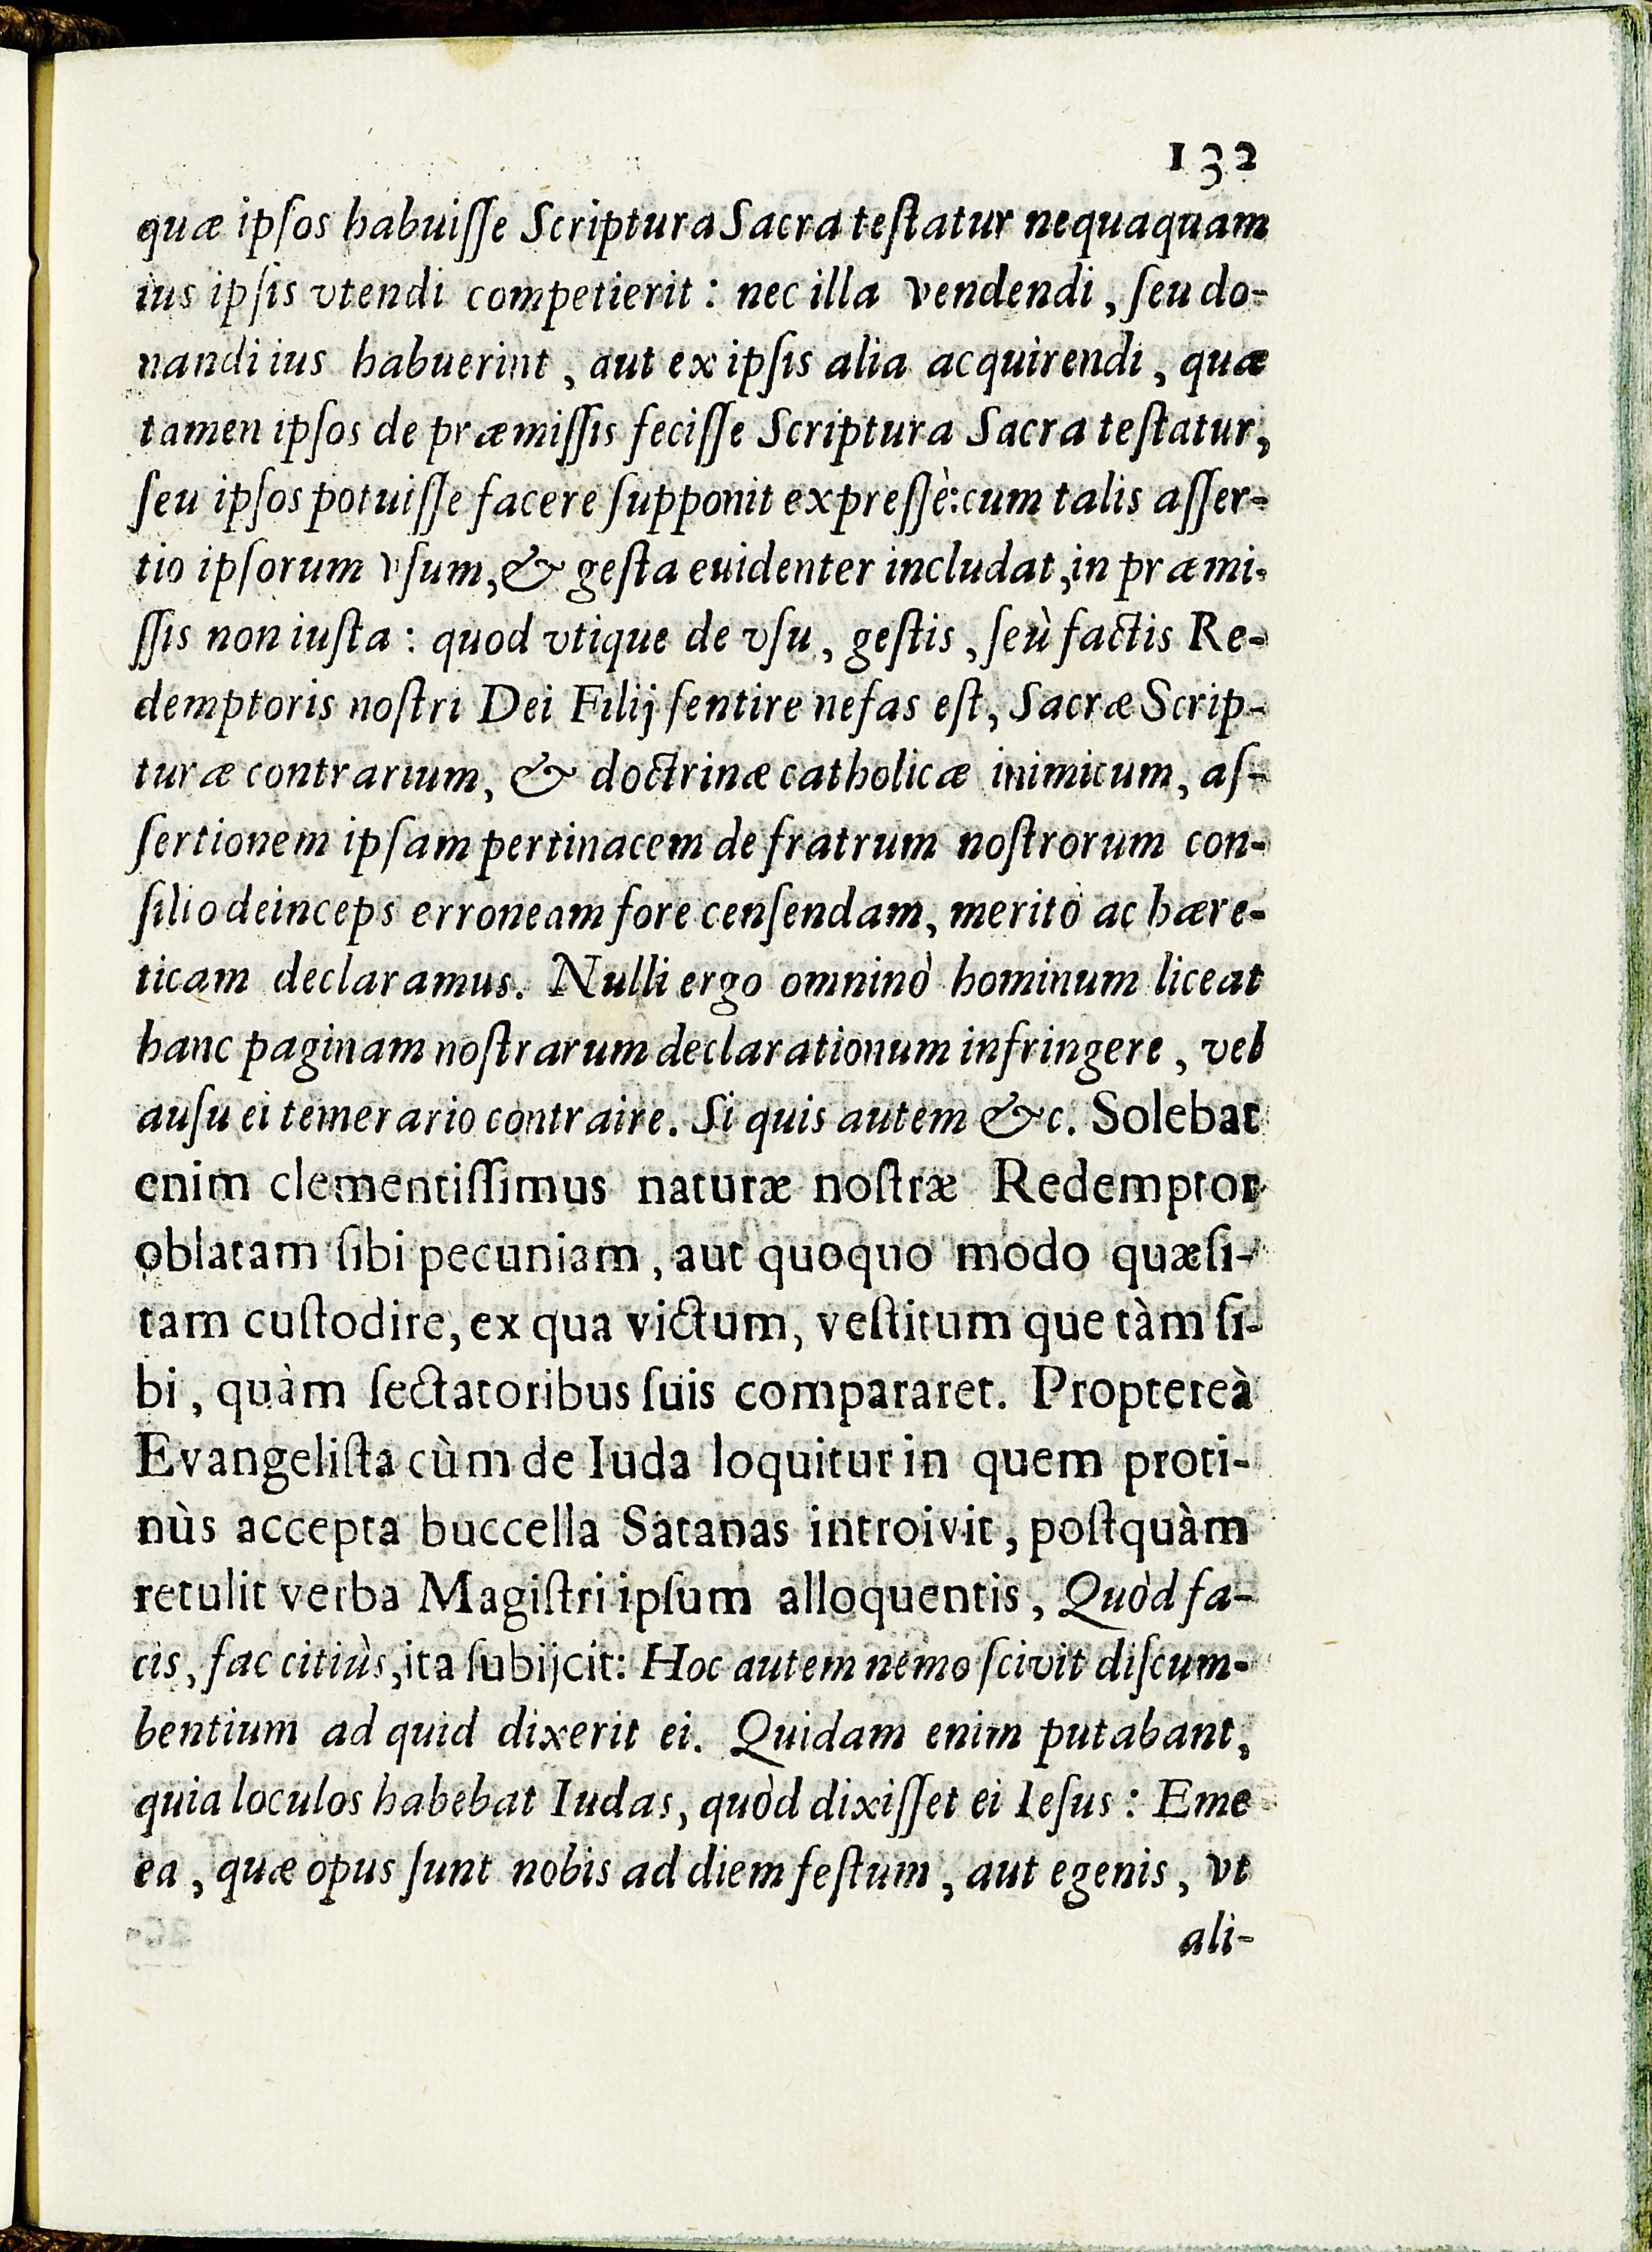 132
quæ ipſos habuiſſe Scriptura Sacra teſtatur nequaquam
ius ipſis vtendi competierit: nec illa vendendi, ſeu do-
nandi ius habuerint, aut ex ipſis alia acquirendi, quæ
tamen ipſos de præmiſſis feciſſe Scriptura Sacra teſtatur,
ſeu ipſos potuiſſe facere ſupponit expreſſè: cum talis aſſer-
tio ipſorum vſum, & geſta euidenter includat, in præmi-
ſſis non iuſta: quod vtique de vſu, geſtis, ſeù factis Re-
demptoris noſtri Dei Filij ſentire nefas eſt, Sacræ Scrip-
turæ contrarium, & doctrinæ catholicæ inimicum, aſ-
ſertionem ipſam pertinacem de fratrum noſtrorum con-
ſilio deinceps erroneam fore cenſendam, meritò ac hære-
ticam declaramus. Nulli ergo omninò hominum liceat
hanc paginam noſtrarum declarationum infringere, vel
auſu ei temerario contraire. Si quis autem &c. Solebat
enim clementiſſimus naturæ noſtræ Redemptor
oblatam ſibi pecuniam, aut quoquo modo quæſi-
tam cuſtodire, ex qua victum, veſtitum que tàm ſi-
bi, quàm ſectatoribus ſuis compararet. Proptereà
Evangeliſta cùm de Iuda loquitur in quem proti-
nùs accepta buccella Satanas introivit, poſtquàm
retulit verba Magiſtri ipſum alloquentis, Quòd fa-
cis, fac citiùs, ita ſubijcit: Hoc autem nemo ſcivit diſcum-
bentium ad quid dixerit ei. Quidam enim putabant,
quia loculos habebat Iudas, quòd dixiſſet ei Ieſus: Eme
ea, quæ opus ſunt nobis ad diem feſtum, aut egenis, vt
ali-